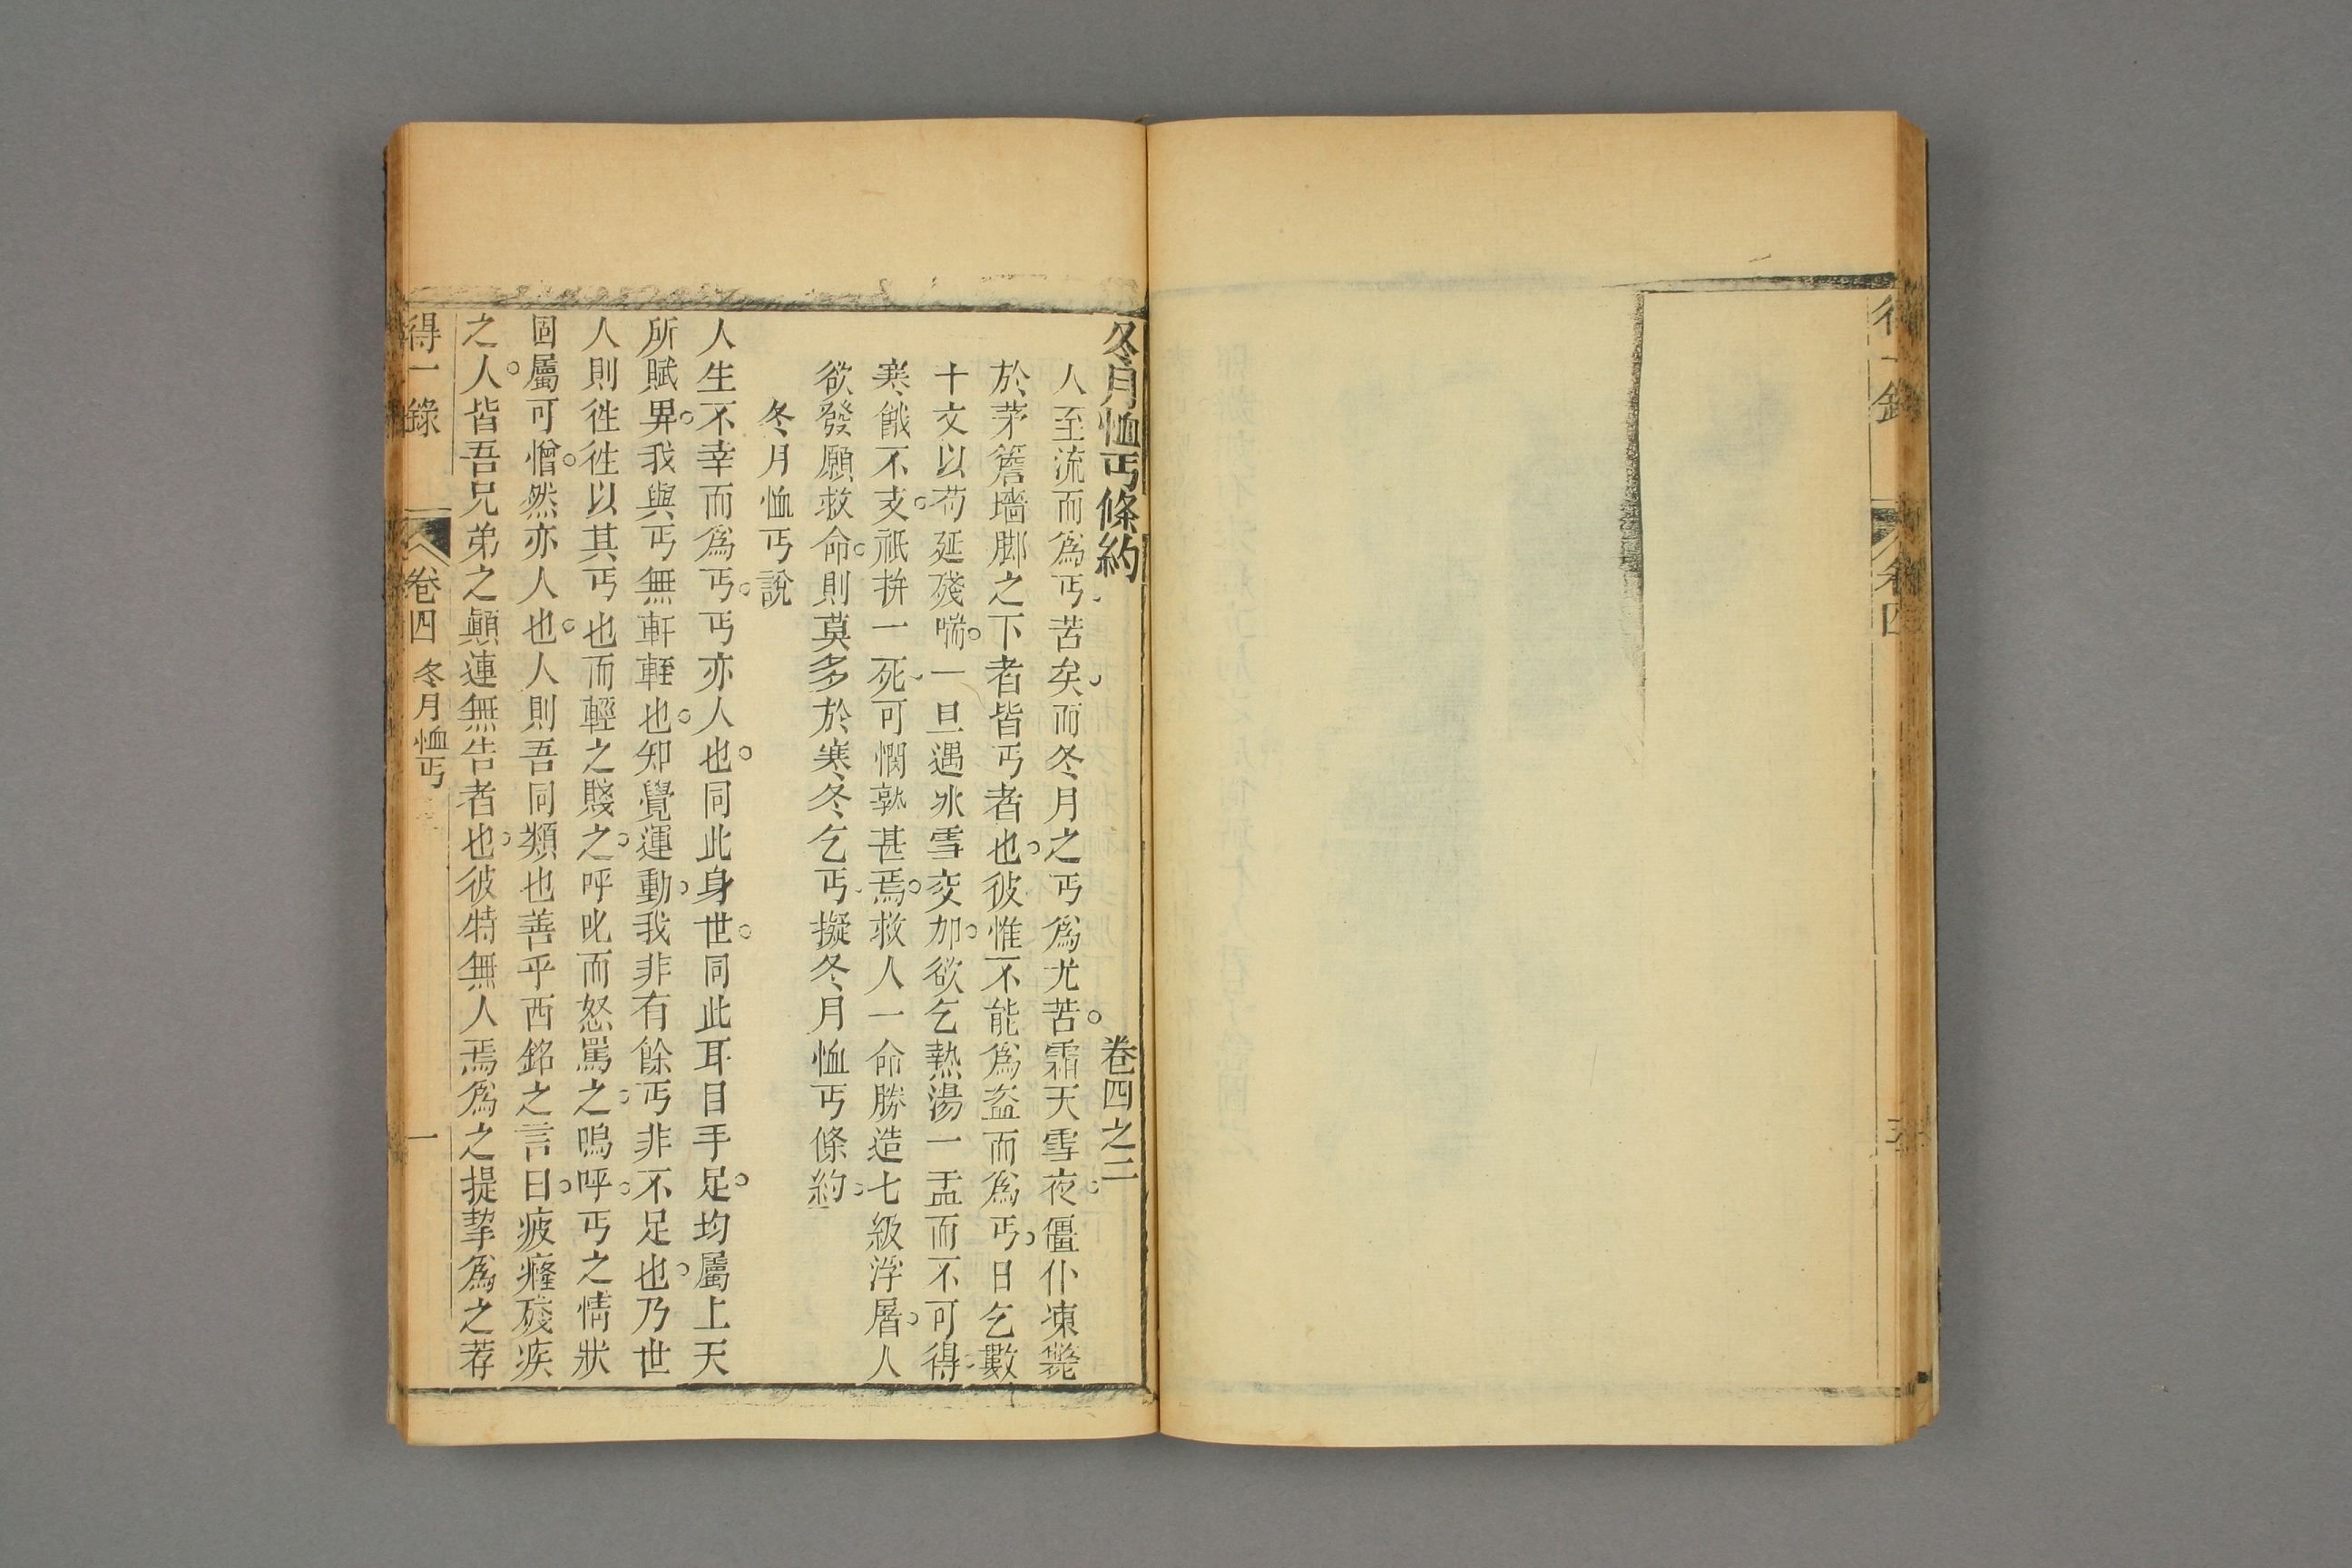 得一錄 卷四
冬月恤丐條約 卷四之二
人至流而爲丐苦矣而冬月之丐爲尤苦霜天雪夜僵仆凍斃
於茅簷墻脚之下者皆丐者也彼惟不能爲盜而爲丐日乞數
十文以苟延殘喘一旦遇冰雪交加欲乞熱湯一盂而不可得
寒餓不支祇拚一死可憫孰甚焉救人一命勝造七級浮屠人
欲發願救命則莫多於寒冬乞丐擬冬月恤丐條約
冬月恤丐說
人生不幸而爲丐丐亦人也同此身世同此耳目手足均屬上天
所賦畀我與丐無軒輊也知覺運動我非有餘丐非不足也乃世
人則徃徃以其丐也而輕之賤之呼叱而怒罵之嗚呼丐之情狀
固屬可憎然亦人也人則吾同類也善乎西銘之言曰疲癃殘疾
之人皆吾兄弟之顚連無告者也彼特無人焉爲之提挈爲之荐
得一錄 卷四 冬月恤丐 一